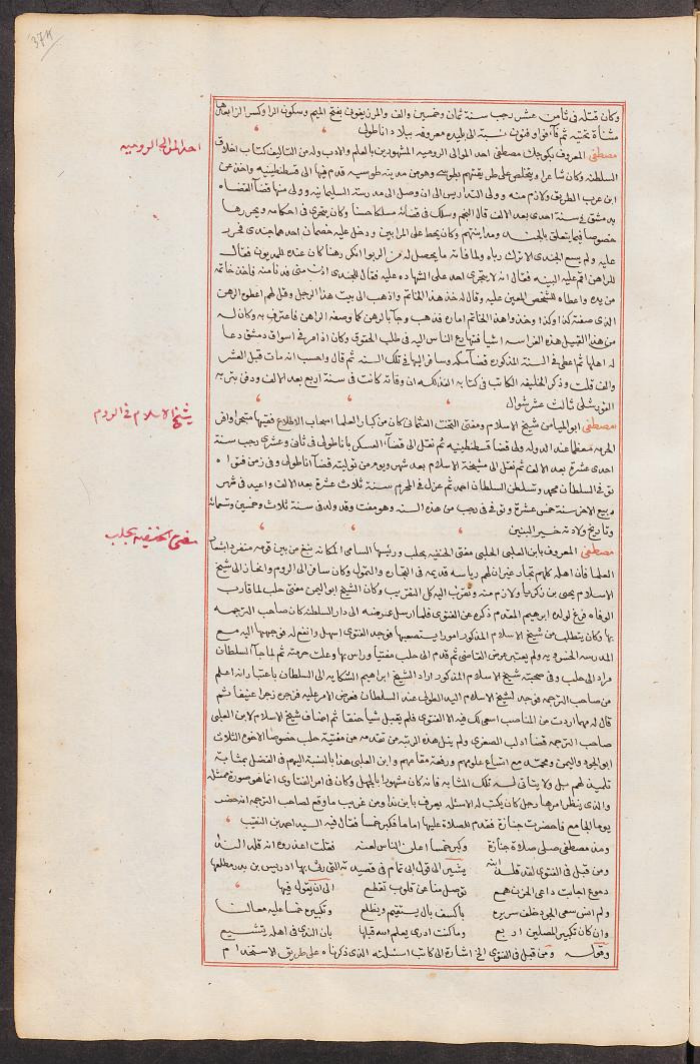 374
وكان قتله في ثامن عشر رجب سنة ثمان وخمسين والف والمرزيفوني بفتح الميم وسكون الرا وكسر الزا بعدها
مثناة تحتية ثم فاء فواو فنون نسبة الى بليده معروفه ببلاد اناطولي
مصطفى المعروف بكوجك مصطفى احد الموالي الروميه المشهورين بالعلم والادب وله من التاليف كتاب اخلاق
احد الموالي الروميه
السلطنه وكان شاعرا ويتخلص على طريقتهم بطوسي وهو من مدينة طوسيه قدم فيها الى قسطنطينيه واخذ عن
ابن عرب الطريق ولازم منه وولي التداريس الى ان وصل الى مدرسة السليمانيه وولي منها قضا القضاه
بدمشق في سنة احدى بعد الالف قال النجم وسلك في قضائه مسلكا حسنا وكان يتحرى في احكامه ويحررها
خصوصا فيما يتعلق بالجند ومدايناتهم وكان يحط على المرابين ودخل عليه خصمان احدهما جندى فحرر
عليه ولم يسع الجندى الا ترك رباه
للراهن اقم عليه البينه فقال انه لا يتجرى احد على الشهاده عليه فقال للجندى
من يده واعطاه للشخص المعين عليه وقال له خذ هذا الخاتم واذهب الى بيت هذا الرجل وقل لهم اعطوه الرهن
الذى صفته كذا وكذا وخذوا هذا الخاتم اماره فذهب وجا بالرهن كما وصفه الراهن فاعترف به وكان له
من هذا القبيل هذه الفراسه اشيا فتهارع الناس اليه في طلب الحقوق وكان اذا مر في اسواق دمشق دعا
له اهلها ثم اعطي في السنة المذكوره قضا مكه وسافر اليها في تلك السنه ثم قال واحسب انه مات قبل العشر
والف قلت وذكر الخليفه الكاتب في كتابه الفذلكه ان وفاته كانت في سنة اربع بعد الالف ودفن بتربه
ثالث عشر شوال
مصطفى ابو الميامن شيخ الاسلام ومفتي التخت العثماني كان من كبار العلما اصحاب الاطلاع فقيها متبحرا وافر
شيخ الاسلام في الروم
الحرمه معظما عند الدوله ولي قضا قسطنطينيه ثم نقل الى قضا العسكر باناطولي في ثاني وعشرى رجب سنة
احدى عشرة بعد الالف ثم نقل الى مشيخة الاسلام بعد شهر ويوم من توليته قضا اناطولي وفي زمن فتواه
توفي السلطان محمد وتسلطن السلطان احمد ثم عزل في المحرم سنة ثلاث عشرة بعد الالف واعيد في شهر
ربيع الاخر سنة خمس عشرة وتوفي في رجب من هذه السنه وهو مفت وقد ولد في سنة ثلاث وخمسين وتسمائة
وتاريخ ولادته خير البنين
مصطفى المعروف بابن العلبي الحلبي مفتي الحنفيه بحلب ورئيسها السامي المكانه نبغ من بين قومه منفردا بشعار
مفتى الحنفيه بحلب
العلما فان اهله كلهم تجار غير ان لهم رياسه قديمه في التجاره والتمول وكان سافر الى الروم وانحاز الى شيخ
الاسلام يحيى بن زكريا ولازم منه وتقرب اليه كل التقريب وكان الشيخ ابو اليمن مفتي حلب لما قارب
الوفاه فرغ لولده ابراهيم المقدم ذكره عن الفتوى فلما ارسل عرضه الى دار السلطنه كان صاحب الترجمه
بها وكان يتطلب من شيخ الاسلام المذكور امورا يستصعبها فوجد الفتوى اسهل وانفع له فوجهها اليه مع
المدرسه الخسرويه ولم يعتبر عرض القاضي ثم قدم الى حلب مفتيا وراس بها وعلت حرمته ثم لما جا السلطان
مراد الى حلب وفي صحبته شيخ الاسلام المذكور اراد الشيخ ابراهيم الشكايه الى السلطان باعتبار انه اعلم
من صاحب الترجمه فوجد لشيخ الاسلام اليد الطولى عند السلطان فعرض الامر عليه فزجره زجرا عنيفا ثم
قال له مهما اردت من المناصب اسعى لك فيه الا الفتوى فلم يقبل شيا حنقا ثم اضاف شيخ الاسلام لابن العلبي
صاحب الترجمه قضا ادلب الصغرى ولم ينل هذه الرتبه من تقدمه من مفتية حلب خصوصا الاخوة الثلاث
ابو الجود واليمن ومحمد مع اتساع علومهم ورفعة مقامهم وابن العلبي هذا بالنسبة اليهم في الفضل بمثابة
تلميذ لهم بل ولا يتاتى له تلك المثابه فانه كان مشهورا بالجهل وكان في امر الفتاوى انما هو صورة ممثله
والذى ينظر امرها رجل كان يكتب له الاسئله يعرف بابن ندا ومن غريب ما وقع لصاحب الترجمه انه حضر
يوما الجامع فاحضرت جنازة فقدم للصلاة عليها اماما فكبر خمسا فقال فيه السيد احمد بن النقيب
ومذ مصطفى صلى صلاة جنازة وكبر خمسا اعلن الناس لعنه فقلت اعذروه انه قلد الندا
ومن قبل في الفتوى لقد قلد ابنه يشير الى قول ابي تمام في قصيدته التي رثى بها ادريس بن بدر مطلعها
دموع اجابت داعي الحزن همع توصل منا عن قلوب تقطع الى ان يقول فيها
ولم انس سعي الجود خلف سريره باكسف بال يستقيم ويظلع وتكبيره خمسا عليه معالنا
وان كان تكبير المصلين اربع وما كنت ادرى يعلم الله قبلها بان الندى في اهله يتشيع
وقوله ومن قبل في الفتوى الخ اشارة الى كاتب اسئلته الذى ذكرناه على طريق الاستخدام